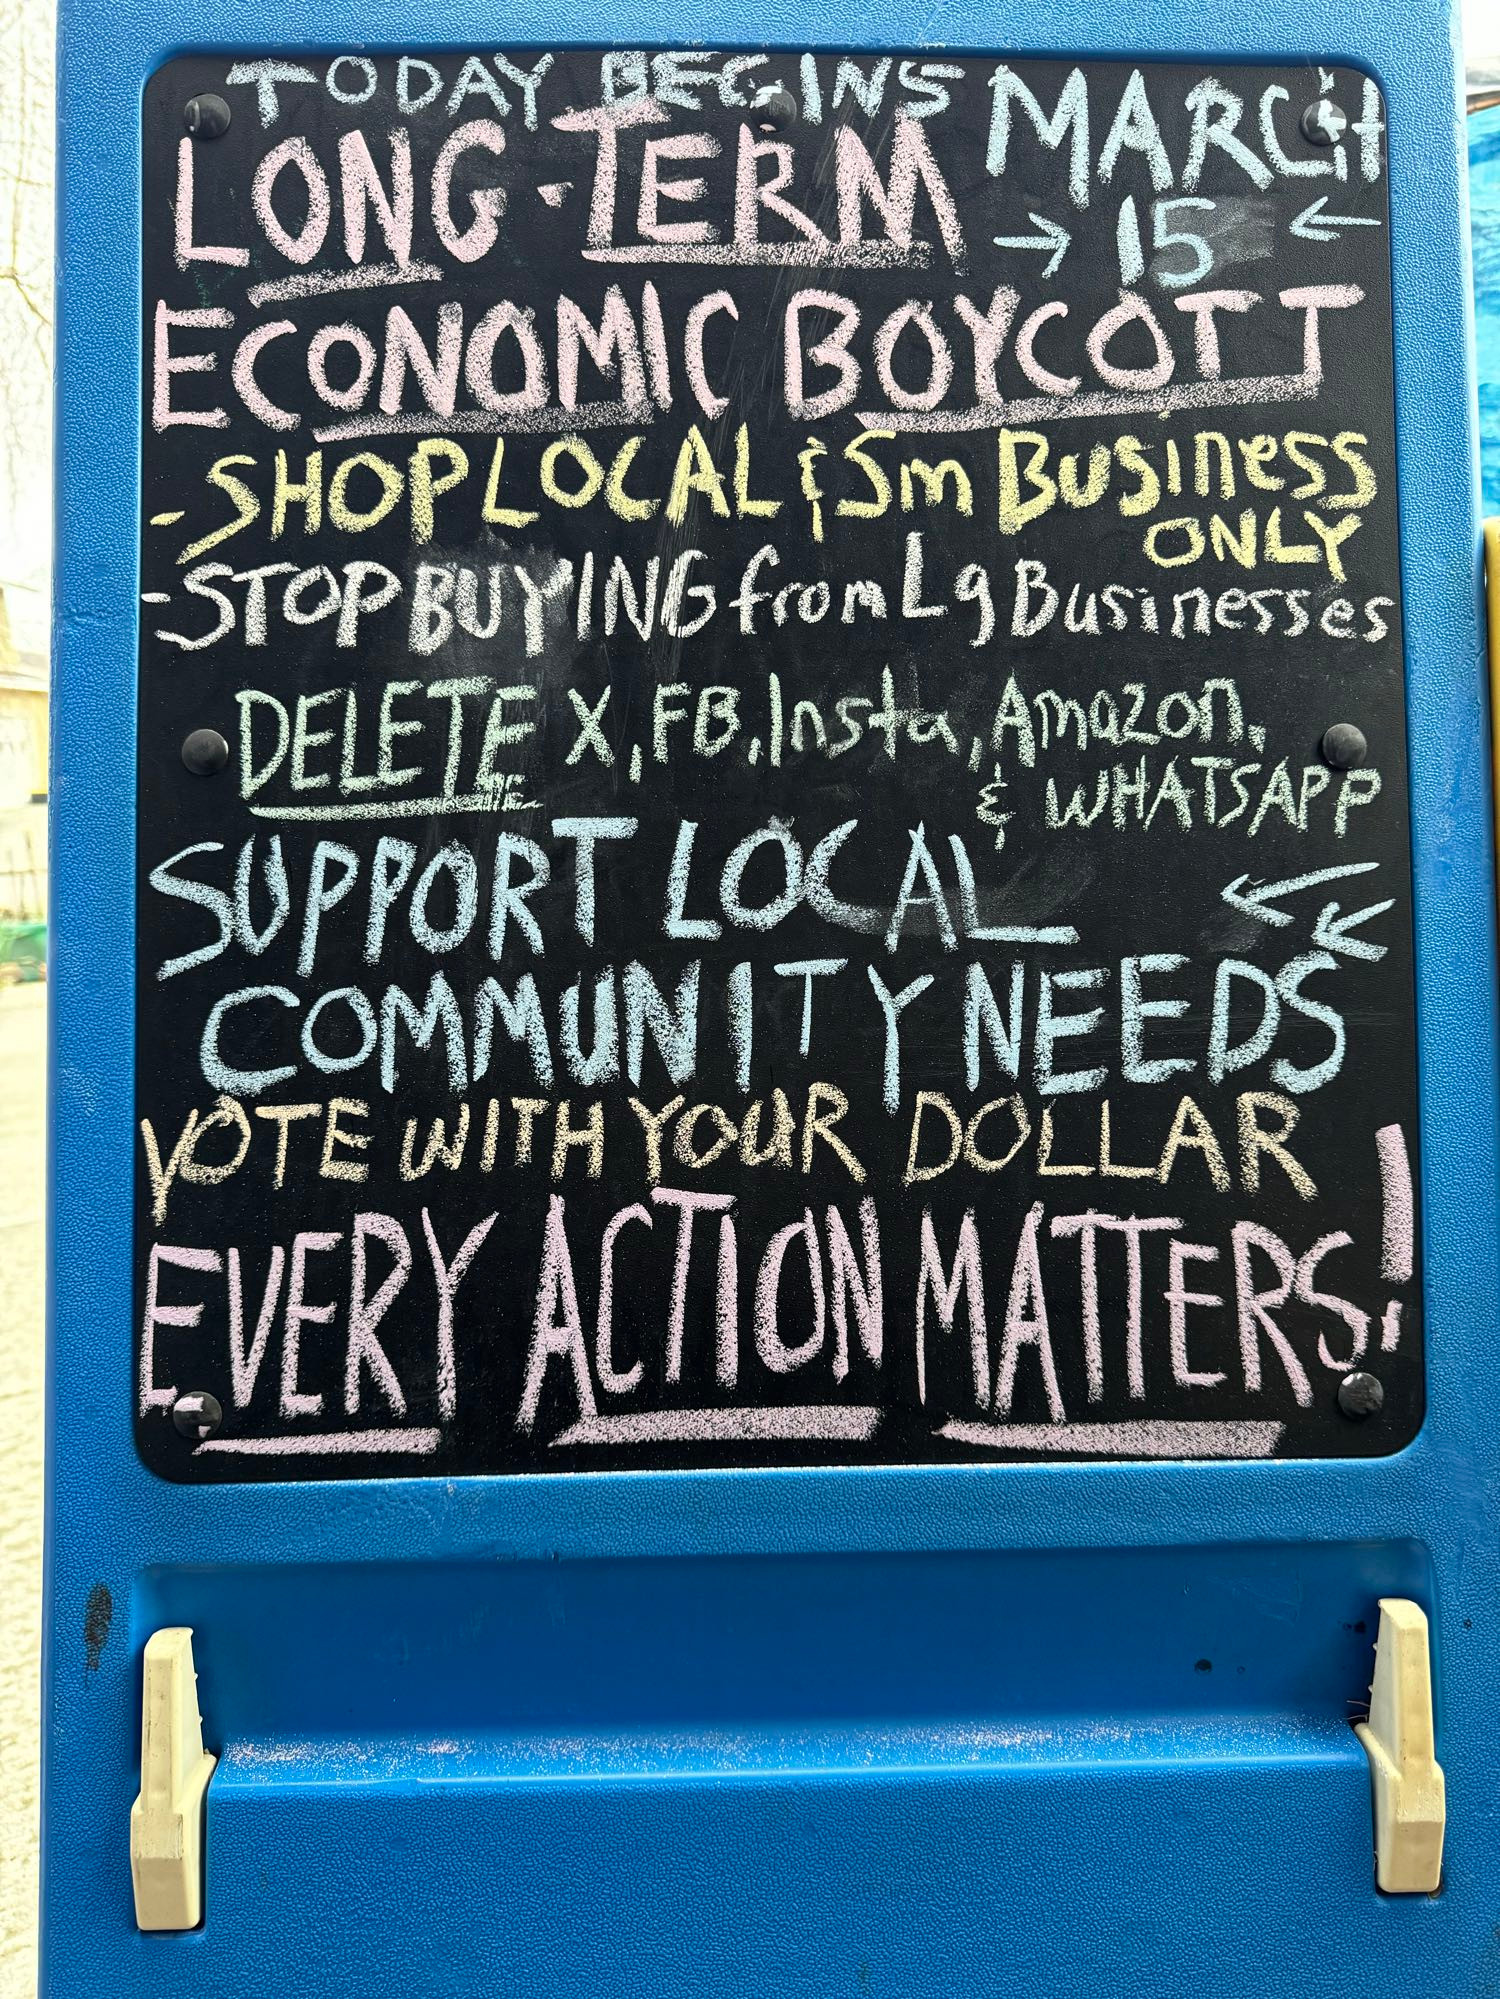 TODAY BEGINS MARCH
LONG-TERM → 15 ←
ECONOMIC BOYCOTT
- SHOP LOCAL & Sm Business
ONLY
- STOP BUYING from Lg Businesses
DELETE X, FB, Insta, Amazon,
& WHATSAPP
SUPPORT LOCAL
COMMUNITY NEEDS
VOTE WITH YOUR DOLLAR
EVERY ACTION MATTERS!